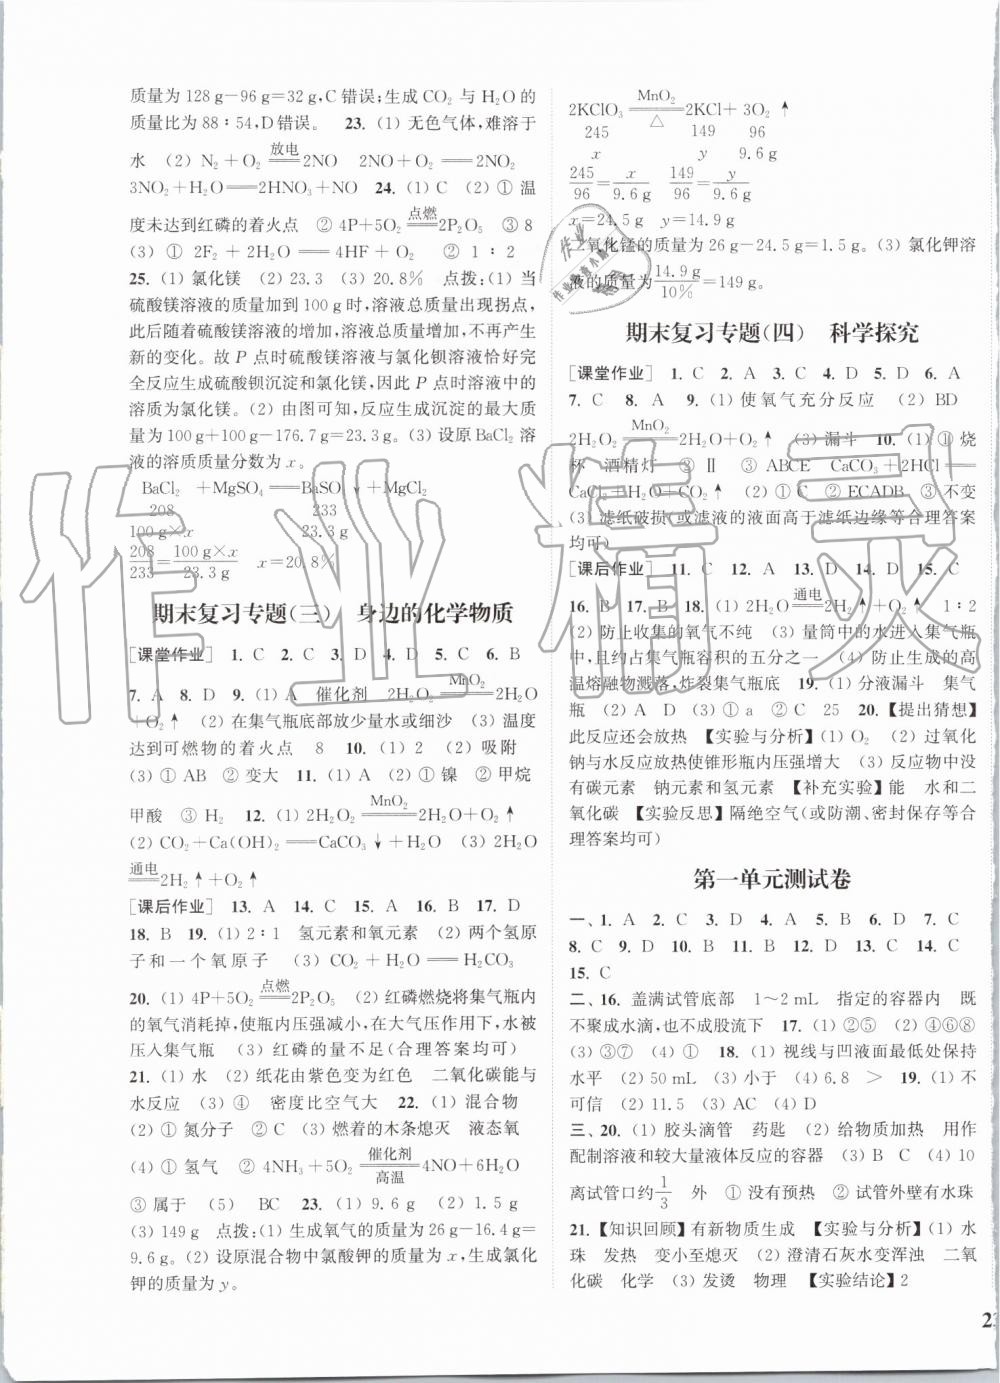 质量为128 g−96 g=32 g,C错误;生成CO₂与H₂O的
质量比为88∶54,D错误。 23. (1) 无色气体,难溶于
水 (2) N₂+O₂ =放电= 2NO 2NO+O₂══2NO₂
3NO₂+H₂O══2HNO₃+NO 24. (1) C (2) ① 温
度未达到红磷的着火点 ② 4P+5O₂ =点燃= 2P₂O₅ ③ 8
(3) ① 2F₂+2H₂O══4HF+O₂ ② 1∶2
25. (1) 氯化镁 (2) 23.3 (3) 20.8% 点拨:(1) 当
硫酸镁溶液的质量加到100 g时,溶液总质量出现拐点,
此后随着硫酸镁溶液的增加,溶液总质量增加,不再产生
新的变化。故P点时硫酸镁溶液与氯化钡溶液恰好完
全反应生成硫酸钡沉淀和氯化镁,因此P点时溶液中的
溶质为氯化镁。(2) 由图可知,反应生成沉淀的最大质
量为100 g+100 g−176.7 g=23.3 g。(3) 设原BaCl₂溶
液的溶质质量分数为x。
BaCl₂ +MgSO₄══BaSO₄↓+MgCl₂
208 233
100 g×x 23.3 g
208/233=100 g×x/23.3 g x=20.8%
期末复习专题(三) 身边的化学物质
[课堂作业] 1. C 2. C 3. D 4. D 5. C 6. B
7. A 8. D 9. (1) A 催化剂 2H₂O₂ =MnO₂= 2H₂O
+O₂↑ (2) 在集气瓶底部放少量水或细沙 (3) 温度
达到可燃物的着火点 8 10. (1) 2 (2) 吸附
(3) ① AB ② 变大 11. (1) ① 镍 ② 甲烷
甲酸 ③ H₂ 12. (1) 2H₂O₂ =MnO₂= 2H₂O+O₂↑
(2) CO₂+Ca(OH)₂══CaCO₃↓+H₂O (3) 2H₂O
=通电= 2H₂↑+O₂↑
[课后作业] 13. A 14. C 15. A 16. B 17. D
18. B 19. (1) 2∶1 氢元素和氧元素 (2) 两个氢原
子和一个氧原子 (3) CO₂+H₂O══H₂CO₃
20. (1) 4P+5O₂ =点燃= 2P₂O₅ (2) 红磷燃烧将集气瓶内
的氧气消耗掉,使瓶内压强减小,在大气压作用下,水被
压入集气瓶 (3) 红磷的量不足(合理答案均可)
21. (1) 水 (2) 纸花由紫色变为红色 二氧化碳能与
水反应 (3) ④ 密度比空气大 22. (1) 混合物
(2) ① 氮分子 ② C (3) 燃着的木条熄灭 液态氧
(4) ① 氢气 ② 4NH₃+5O₂ =催化剂/高温= 4NO+6H₂O
③ 属于 (5) BC 23. (1) 9.6 g (2) 1.5 g
(3) 149 g 点拨:(1) 生成氧气的质量为26 g−16.4 g=
9.6 g。(2) 设原混合物中氯酸钾的质量为x,生成氯化
钾的质量为y。
2KClO₃ =MnO₂/△= 2KCl+3O₂↑
245 149 96
x y 9.6 g
245/96=x/9.6 g 149/96=y/9.6 g
x=24.5 g y=14.9 g
二氧化锰的质量为26 g−24.5 g=1.5 g。(3) 氯化钾溶
液的质量为14.9 g/10%=149 g。
期末复习专题(四) 科学探究
[课堂作业] 1. C 2. A 3. C 4. D 5. D 6. A
7. C 8. A 9. (1) 使氧气充分反应 (2) BD
2H₂O₂ =MnO₂= 2H₂O+O₂↑ (3) 漏斗 10. (1) ① 烧
杯 酒精灯 ② Ⅱ ③ ABCE CaCO₃+2HCl══
CaCl₂+H₂O+CO₂↑ (2) ① C ② ECADB ③ 不变
(3) 滤纸破损(或滤液的液面高于滤纸边缘等合理答案
均可)
[课后作业] 11. C 12. A 13. D 14. D 15. C
16. B 17. B 18. (1) 2H₂O =通电= 2H₂↑+O₂↑ 1∶2
(2) 防止收集的氧气不纯 (3) 量筒中的水进入集气瓶
中,且约占集气瓶容积的五分之一 (4) 防止生成的高
温熔融物溅落,炸裂集气瓶底 19. (1) 分液漏斗 集气
瓶 (2) A (3) ① a ② C 25 20. 【提出猜想】
此反应还会放热 【实验与分析】(1) O₂ (2) 过氧化
钠与水反应放热使锥形瓶内压强增大 (3) 反应物中没
有碳元素 钠元素和氢元素 【补充实验】能 水和二
氧化碳 【实验反思】隔绝空气(或防潮、密封保存等合
理答案均可)
第一单元测试卷
一、1. A 2. C 3. D 4. A 5. B 6. D 7. C
8. C 9. D 10. B 11. B 12. D 13. C 14. C
15. C
二、16. 盖满试管底部 1～2 mL 指定的容器内 既
不聚成水滴,也不成股流下 17. (1) ②⑤ (2) ④⑥⑧
(3) ③⑦ (4) ① 18. (1) 视线与凹液面最低处保持
水平 (2) 50 mL (3) 小于 (4) 6.8 > 19. (1) 不
可信 (2) 11.5 (3) AC (4) D
三、20. (1) 胶头滴管 药匙 (2) 给物质加热 用作
配制溶液和较大量液体反应的容器 (3) B C (4) 10
离试管口约1/3 外 ① 没有预热 ② 试管外壁有水珠
21. 【知识回顾】有新物质生成 【实验与分析】(1) 水
珠 发热 变小至熄灭 (2) 澄清石灰水变浑浊 二氧
化碳 化学 (3) 发烫 物理 【实验结论】2
作业精灵